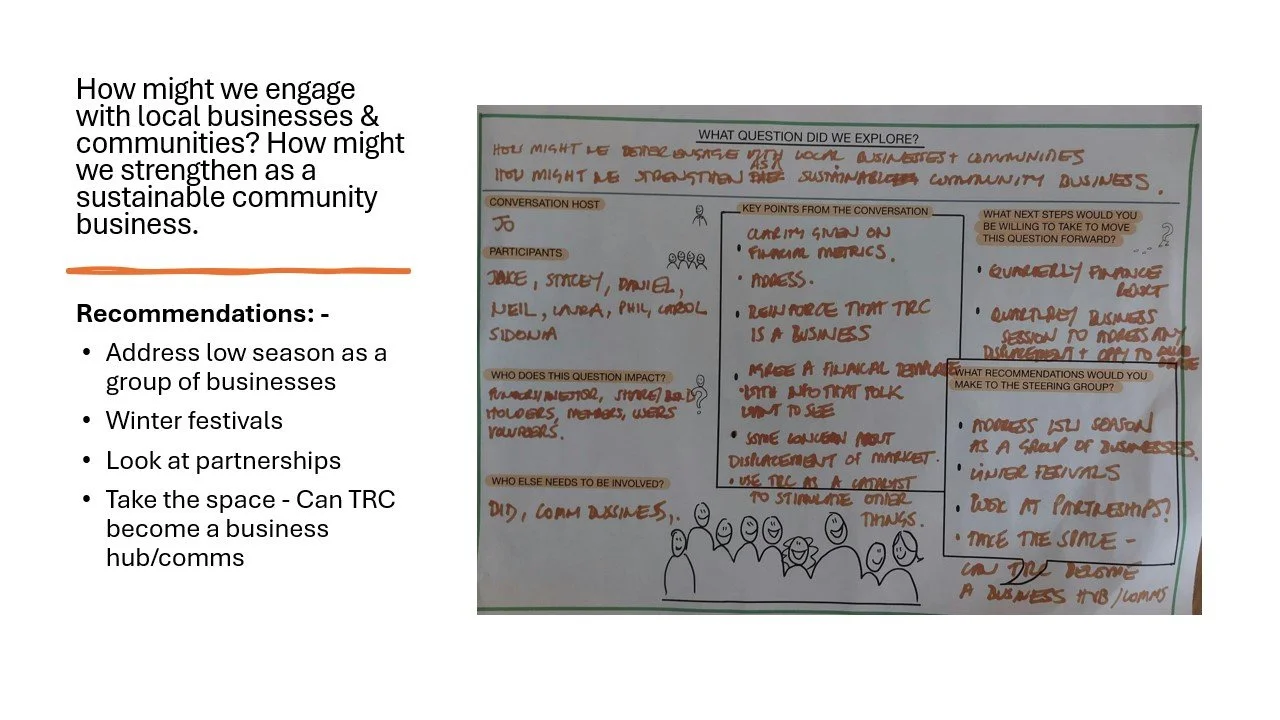 How might we engage
with local businesses &
communities? How might
we strengthen as a
sustainable community
business.
Recommendations: -
• Address low season as a
group of businesses
• Winter festivals
• Look at partnerships
• Take the space - Can TRC
become a business
hub/comms
WHAT QUESTION DID WE EXPLORE?
HOW MIGHT WE BETTER ENGAGE WITH LOCAL BUSINESSES + COMMUNITIES
HOW MIGHT WE STRENGTHEN AS A SUSTAINABLE COMMUNITY BUSINESS.
CONVERSATION HOST
JO
PARTICIPANTS
JAKE, STACEY, DANIEL,
NEIL, LAURA, PHIL, CAROL
SIDONIA
WHO DOES THIS QUESTION IMPACT?
HOLDERS, MEMBERS, USERS
WHO ELSE NEEDS TO BE INVOLVED?
COMM BUSINESS,.
KEY POINTS FROM THE CONVERSATION
CLARITY GIVEN ON
• FINANCIAL METRICS.
• ADDRESS.
• REINFORCE THAT TRC
IS A BUSINESS
• AGREE A FINANCIAL TEMPLATE
• WITH INFO THAT FOLK
WANT TO SEE
• SOME CONCERN ABOUT
DISPLACEMENT OF MARKET.
• USE TRC AS A CATALYST
TO STIMULATE OTHER
THINGS.
WHAT NEXT STEPS WOULD YOU
BE WILLING TO TAKE TO MOVE
THIS QUESTION FORWARD?
• QUARTERLY FINANCE
• QUARTERLEY BUSINESS
SESSION TO ADRESS ANY
DISPLACEMENT + OPP TO
WHAT RECOMMENDATIONS WOULD YOU
MAKE TO THE STEERING GROUP?
• ADDRESS LOW SEASON
AS A GROUP OF BUSINESSES.
• WINTER FESIVALS
• LOOK AT PARTNERSHIPS?
• TAKE THE SPACE -
CAN TRC BECOME
A BUSINESS HUB/COMMS